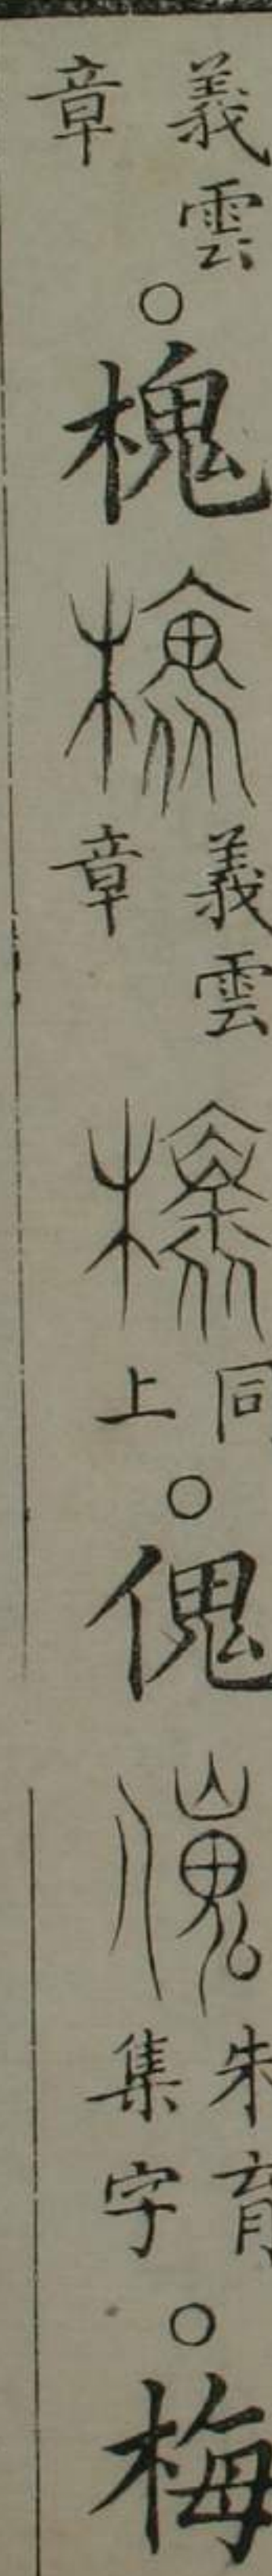 義雲章○槐義雲章同上○傀朱育集字○梅